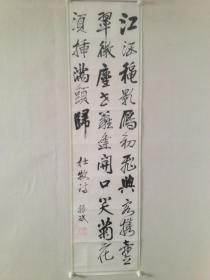 江涵穐影鴈初飛與客攜壺上
翠微塵世難逢開口笑菊花
須插滿頭歸
杜牧詩